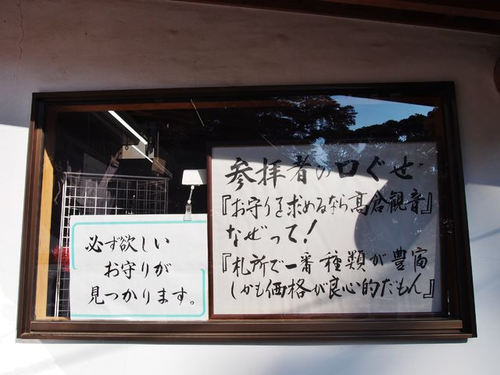 参拝者の口ぐせ
『お守りを求めるなら高倉観音』
なぜって！
『札所で一番種類が豊富
しかも価格が良心的だもん』
必ず欲しい
お守りが
見つかります。